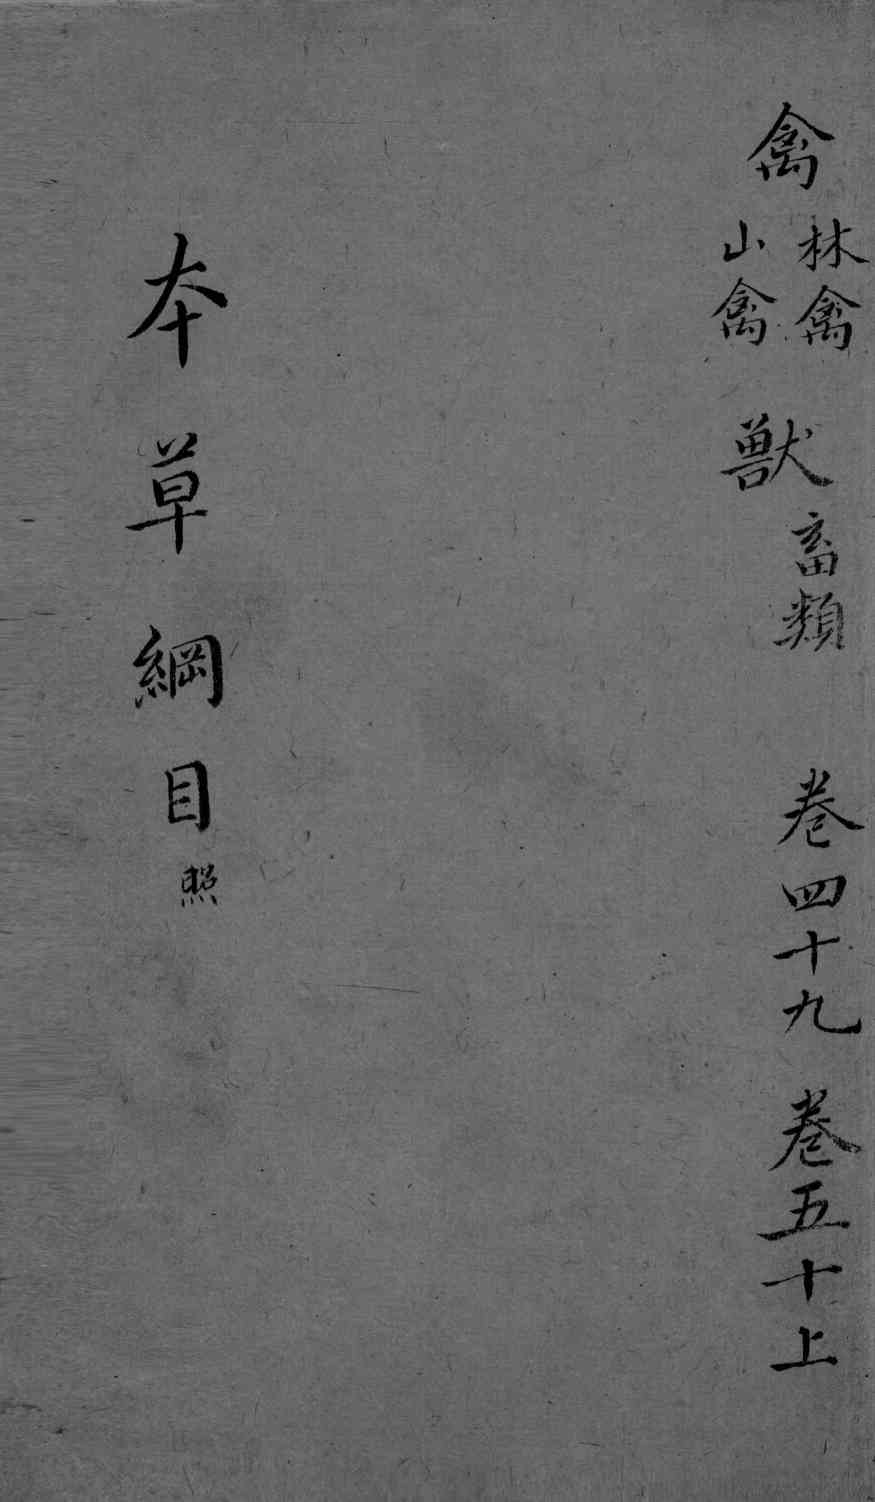 禽 林禽 山禽 獸 畜類 卷四十九 卷五十上
本草綱目 照